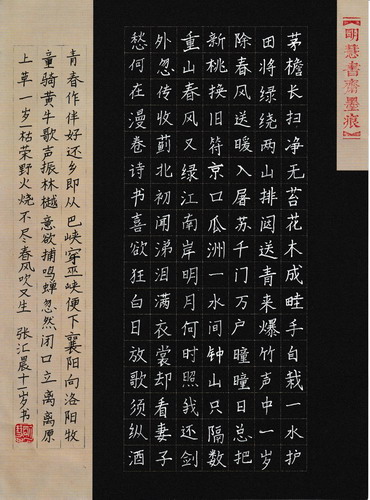 【明慧書齋墨痕】
茅檐长扫净无苔花木成畦手自栽一水护
田将绿绕两山排闼送青来爆竹声中一岁
除春风送暖入屠苏千门万户曈曈日总把
新桃换旧符京口瓜洲一水间钟山只隔数
重山春风又绿江南岸明月何时照我还剑
外忽传收蓟北初闻涕泪满衣裳却看妻子
愁何在漫卷诗书喜欲狂白日放歌须纵酒
青春作伴好还乡即从巴峡穿巫峡便下襄阳向洛阳牧
童骑黄牛歌声振林樾意欲捕鸣蝉忽然闭口立离离原
上草一岁枯荣野火烧不尽春风吹又生 张汇晨十一岁书